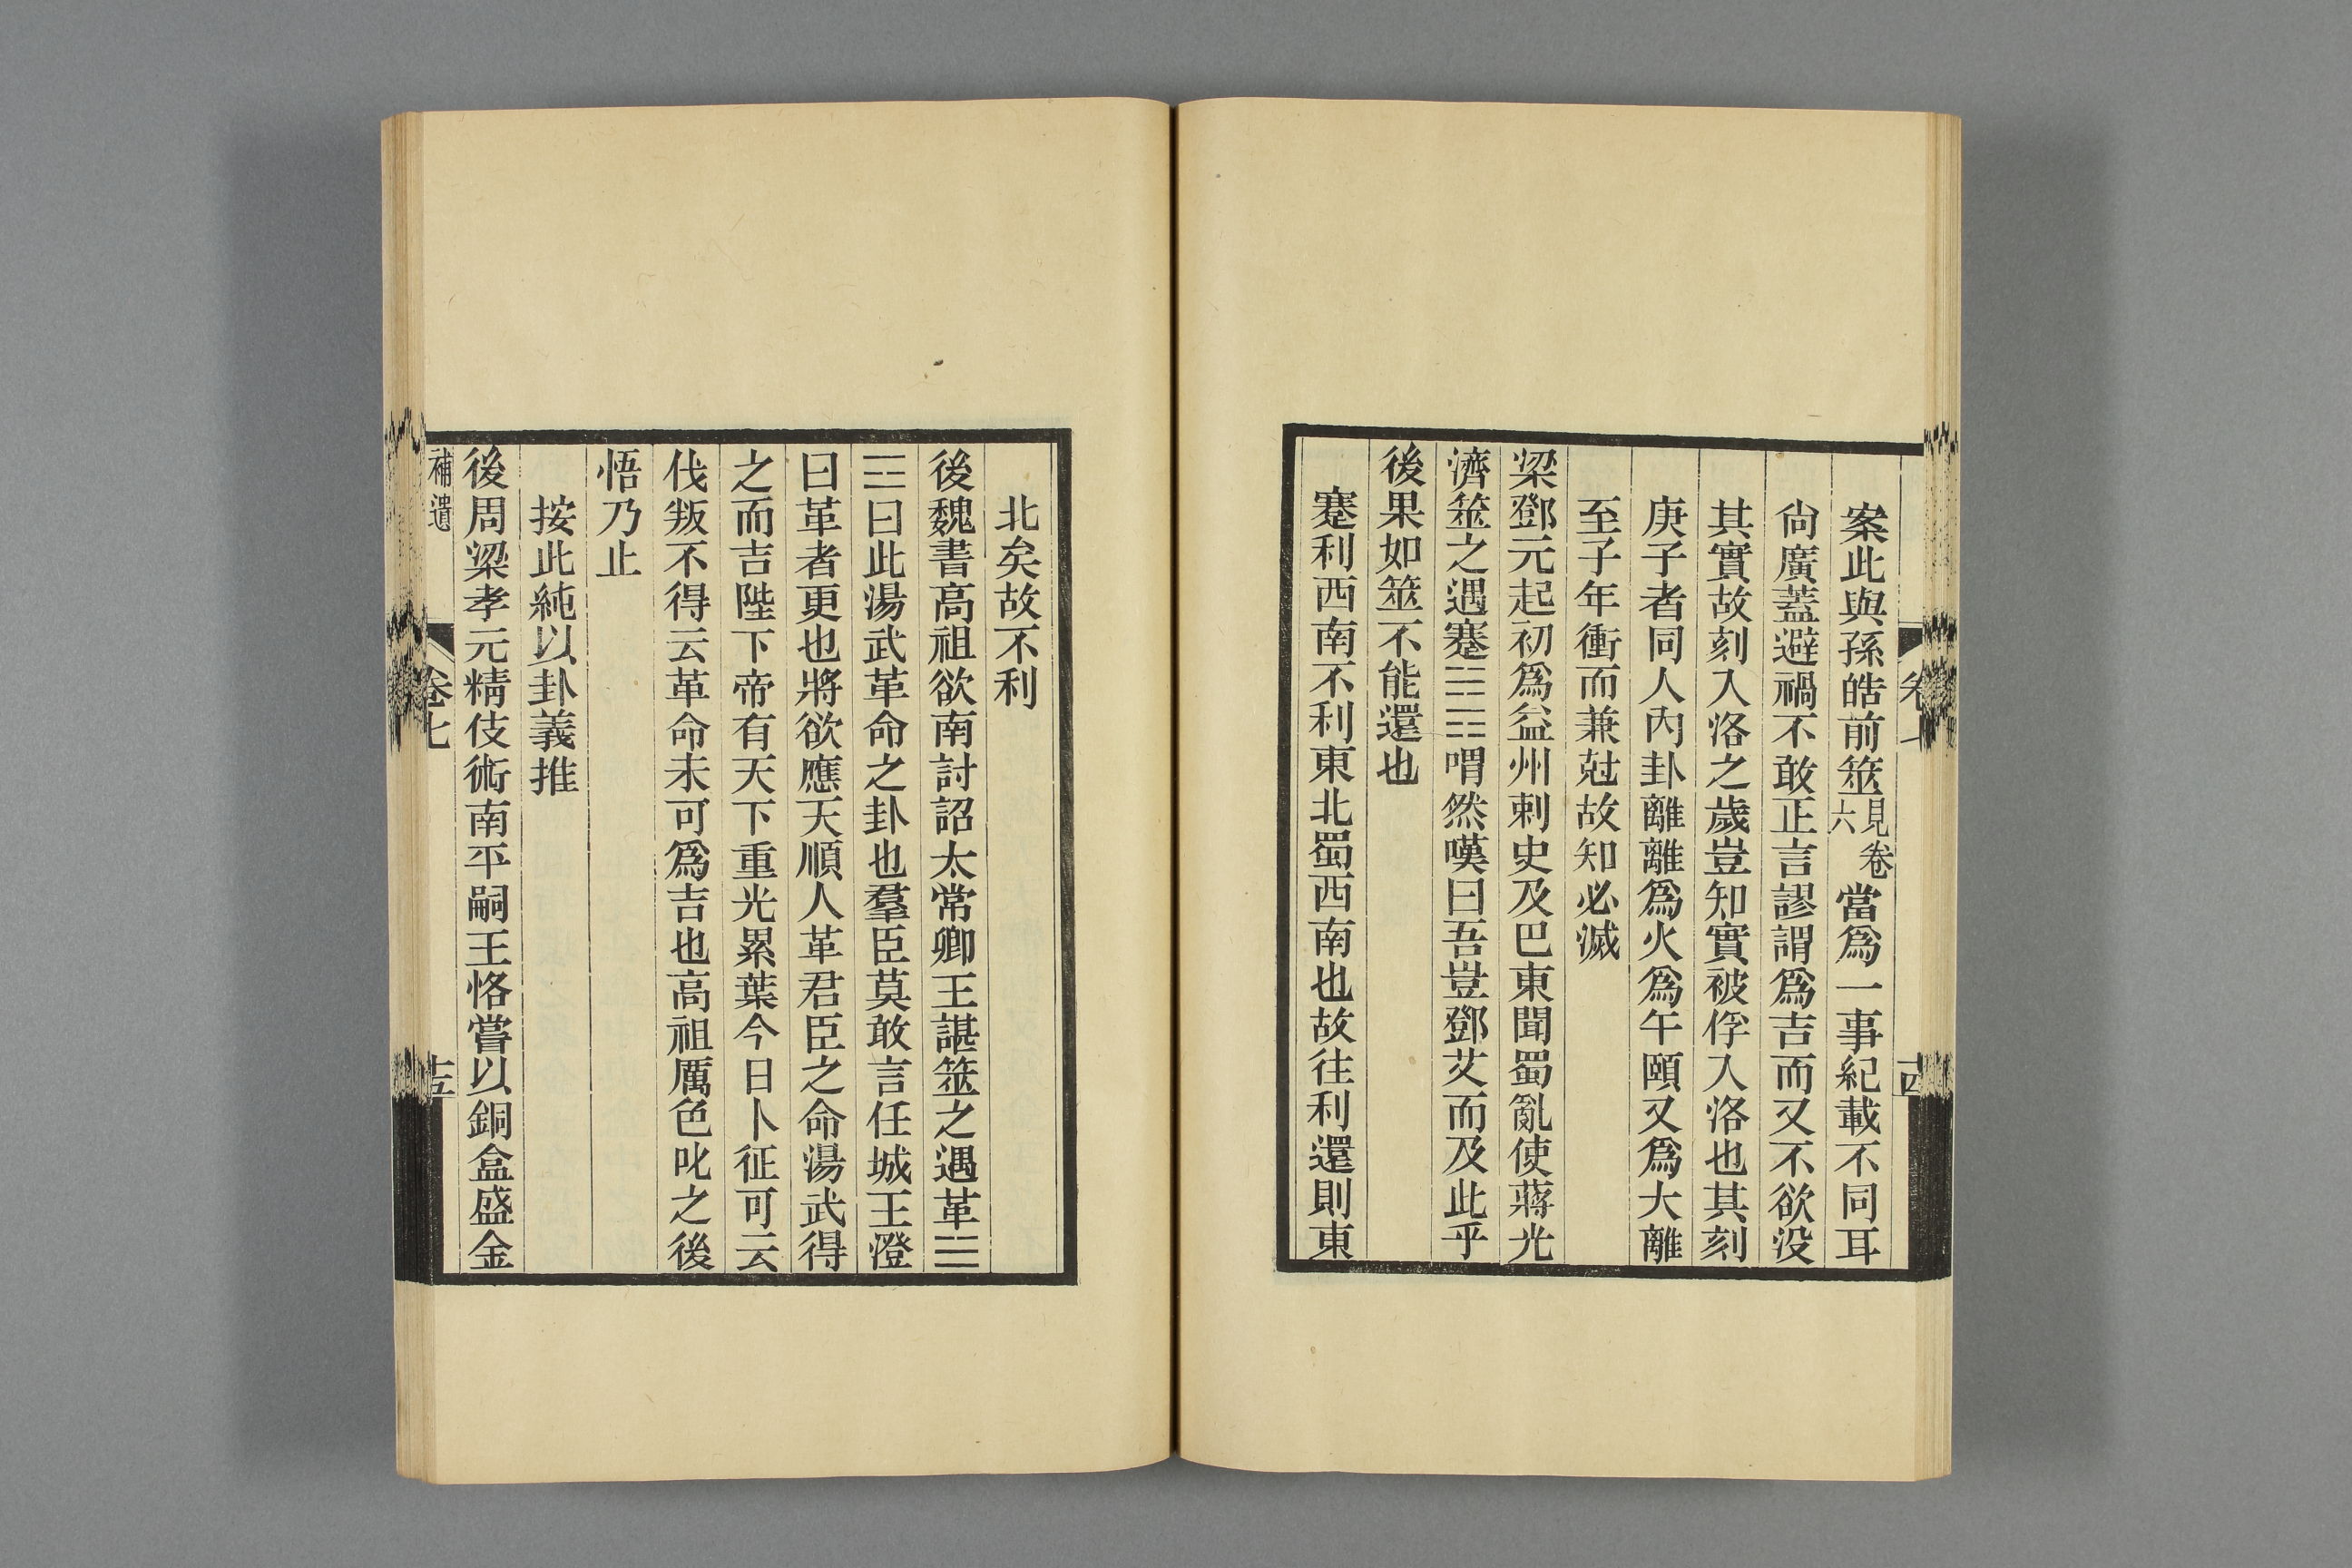 案此與孫皓前筮見卷六當爲一事紀載不同耳
尙廣蓋避禍不敢正言謬謂爲吉而又不欲没
其實故刻入洛之歲豈知實被俘入洛也其刻
庚子者同人內卦離離爲火爲午頤又爲大離
至子年衝而兼尅故知必滅
梁鄧元起初爲益州刺史及巴東聞蜀亂使蔣光
濟筮之遇蹇☵☶喟然嘆曰吾豈鄧艾而及此乎
後果如筮不能還也
蹇利西南不利東北蜀西南也故往利還則東
卷七
十四
北矣故不利
後魏書高祖欲南討詔太常卿王諶筮之遇革☱
☲曰此湯武革命之卦也羣臣莫敢言任城王澄
曰革者更也將欲應天順人革君臣之命湯武得
之而吉陛下帝有天下重光累葉今日卜征可云
伐叛不得云革命未可爲吉也高祖厲色叱之後
悟乃止
按此純以卦義推
後周梁孝元精伎術南平嗣王恪嘗以銅盒盛金
補遺
卷七
十五